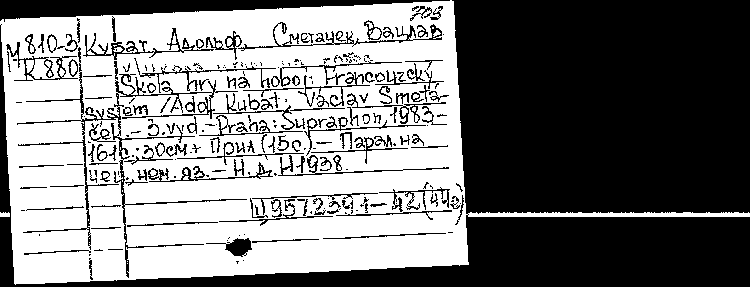 703
М 810-3 Кубат, Адольф, Сметачек, Вацлав
К 880
Škola hry na hoboj: Francouzský
systém / Adolf Kubát; Václav Smetá-
ček. – 3. vyd. – Praha: Supraphon, 1983 –
161 с.; 30 см + Прил (15 с.) – Парал. на
чеш., нем. яз. – Н. д. Н 1938.
1) 957.239.1 – 42 (44е)